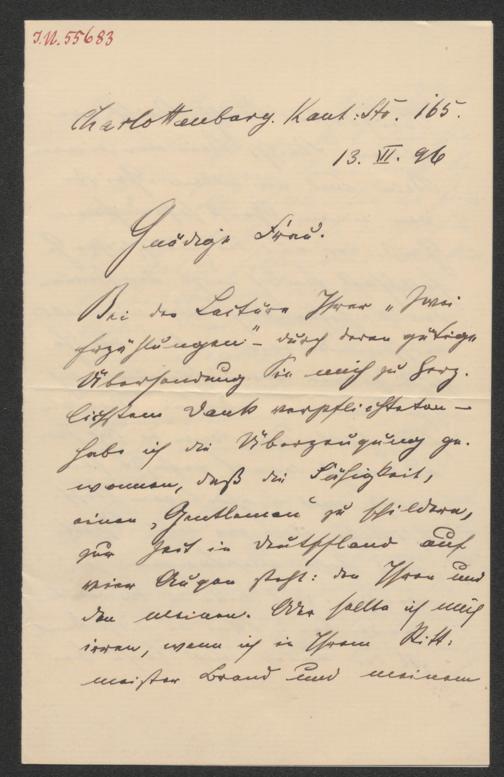 J.N. 55683
Charlottenburg. Kant:Str. 165.
13. VII. 96
Gnädige Frau.
Bei der Lectüre Ihrer „Zwei
Erzählungen" – durch deren gütige
Übersendung Sie mich zu herz-
lichstem Dank verpflichteten –
habe ich die Überzeugung ge-
wonnen, daß die Fähigkeit,
einen „Gentleman" zu schildern,
zur Zeit in Deutschland auf
vier Augen steht: den Ihren und
den meinen. Oder sollte ich mich
irren, wenn ich in Ihrem Ritt-
meister Brand und meinem